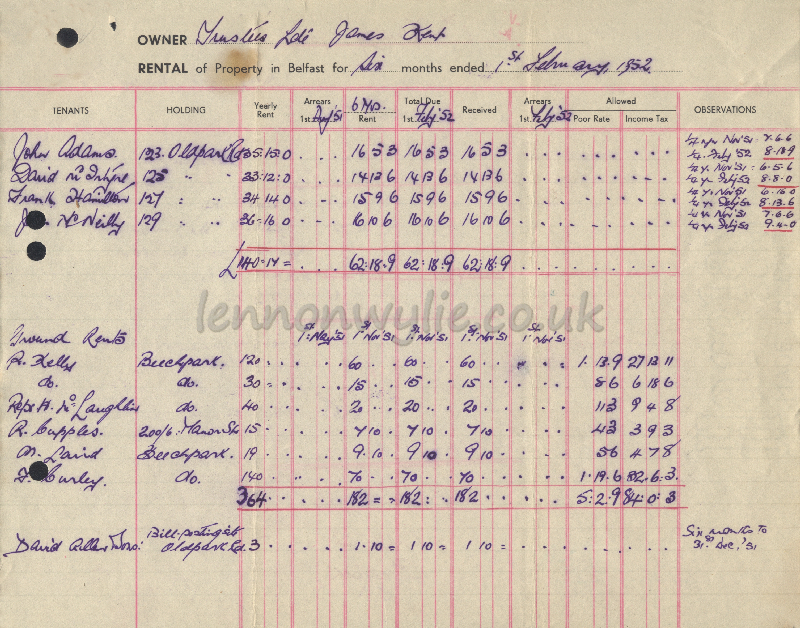 OWNER Trustees James Kent
RENTAL of Property in Belfast for Six months ended 1st February, 1952.
TENANTS HOLDING Yearly Rent Arrears 1st Aug '51 6 Mos. Rent Total Due 1st Feby '52 Received Arrears 1st Feby '52 Allowed Poor Rate Income Tax OBSERVATIONS
John Adams 123 Oldpark Rd 35:15:0 16 5 3 16 5 3 16 5 3 ½ yr Nov '51 7-6-6
½ yr Feby '52 8-18-9
David 125 " " 33:12:0 14 13 6 14 13 6 14 13 6 ½ yr. Nov '51 6-5-6
½ yr Feby 52 8-8-0
Frank Hamilton 127 " " 34 14 0 15 9 6 15 9 6 15 9 6 ½ yr. Nov 51 6-16-0
½ yr Feby 52 8-13-6
McNeilly 129 " " 36-16 0 16 10 6 16 10 6 16 10 6 ½ yr Nov '51 7-6-6
½ yr Feby 52 9-4-0
£140-17 = 62:18.9 62:18.9 62:18.9
lennonwylie.co.uk
Ground Rents 1st May '51 1st Nov '51 1st Nov '51 1st Nov '51 1st Nov '51
R. Kelly Beechpark. 120 60 60 60 1. 13.9 27 13 11
do. do. 30 15 15 15 8 6 6 18 6
Reps H. McLaughlin do. 40 20 20 20 11 3 9 4 8
R. Cupples. 200/6 Manor St. 15 7 10 7 10 7 10 4 3 3 9 3
Laird Beechpark. 19 9.10 9 10 9 10 5 6 4 7 8
Curley. do. 140 70 70 70 1.19.6 32.6.3.
364 182 = = 182 182 5.2.9 84.0.3
David Allen Bill-posting at Oldpark Rd. 3 1.10 = 1 10 = 1 10 = Six months to
31st Dec. '51